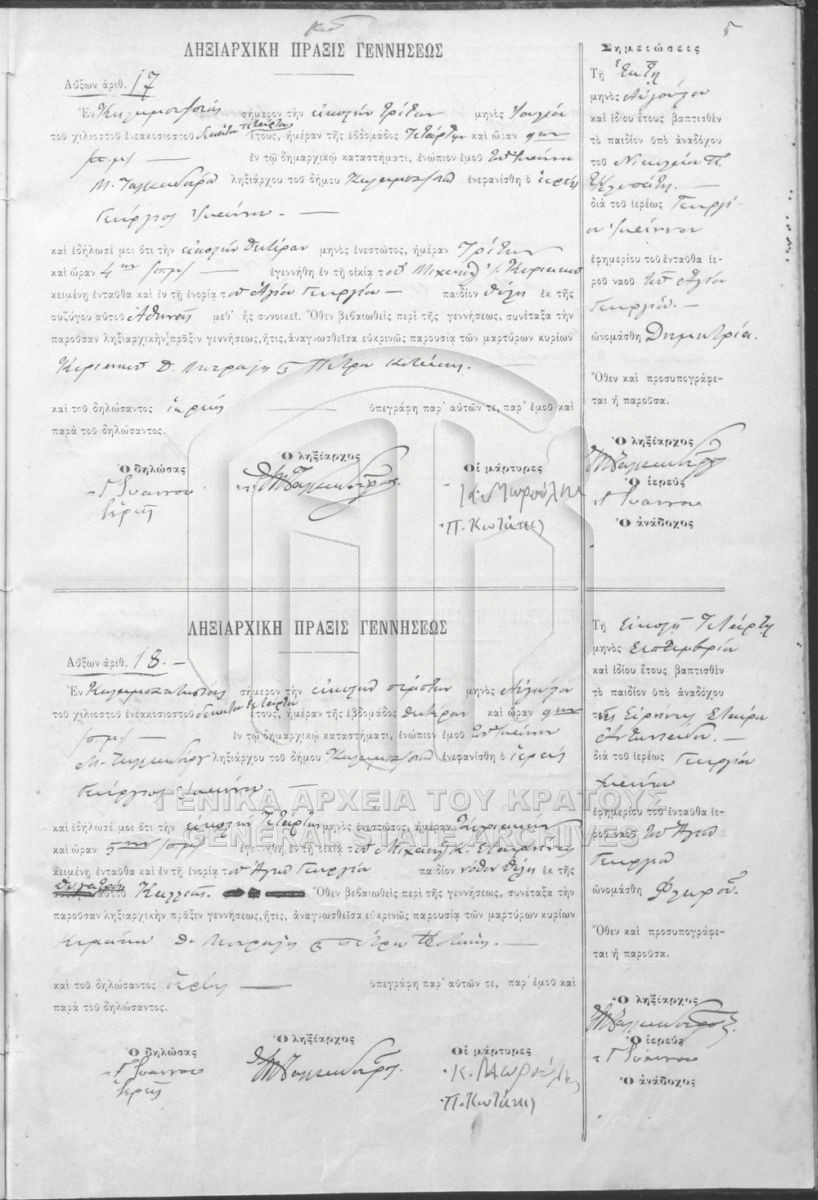 5
ΛΗΞΙΑΡΧΙΚΗ ΠΡΑΞΙΣ ΓΕΝΝΗΣΕΩΣ
Αὔξων ἀριθ. 17
Ἐν σήμερον τὴν εἰκοστὴν τρίτην μηνὸς Ἰουλίου
τοῦ χιλιοστοῦ ἐνεακοσιοστοῦ δεκάτου τετάρτου ἔτους, ἡμέραν τῆς ἑβδομάδος Τετάρτην καὶ ὥραν 9ην
π.μ. — ἐν τῷ δημαρχικῷ καταστήματι, ἐνώπιον ἐμοῦ
Μ. ληξιάρχου τοῦ δήμου ἐνεφανίσθη ὁ ἱερεὺς
Γεώργιος Ἰωάννου —
καὶ ἐδήλωσέ μοι ὅτι τὴν εἰκοστὴν δευτέραν μηνὸς ἐνεστῶτος, ἡμέραν Τρίτην
καὶ ὥραν 4ην — ἐγεννήθη ἐν τῇ οἰκίᾳ τοῦ Μιχαὴλ
κειμένῃ ἐνταῦθα καὶ ἐν τῇ ἐνορίᾳ τοῦ Ἁγίου Γεωργίου — παιδίον θῆλυ ἐκ τῆς
συζύγου αὐτοῦ Ἀθηνᾶς μεθ' ἧς συνοικεῖ. Ὅθεν βεβαιωθεὶς περὶ τῆς γεννήσεως, συνέταξα τὴν
παροῦσαν ληξιαρχικὴν πρᾶξιν γεννήσεως, ἥτις, ἀναγνωσθεῖσα εὐκρινῶς παρουσίᾳ τῶν μαρτύρων κυρίων
Πέτρου
καὶ τοῦ δηλώσαντος ἱερέως — ὑπεγράφη παρ' αὐτῶν τε, παρ' ἐμοῦ καὶ
παρὰ τοῦ δηλώσαντος.
Ὁ δηλώσας
Γ Ἰωάννου
Ἱερεύς
Ὁ ληξίαρχος
Οἱ μάρτυρες
Κ. Μωρούλης
Π. Κωτάκης
Σημειώσεις
Τῇ Ἕκτῃ
μηνὸς Αὐγούστου
καὶ ἰδίου ἔτους βαπτισθὲν
τὸ παιδίον ὑπὸ ἀναδόχου
τοῦ Νικολάου Π.
διὰ τοῦ ἱερέως Γεωργί-
ου Ἰωάννου
ἐφημερίου τοῦ ἐνταῦθα ἱε-
ροῦ ναοῦ τοῦ Ἁγίου
Γεωργίου —
ὠνομάσθη Δημητρία.
Ὅθεν καὶ προσυπογράφε-
ται ἡ παροῦσα.
Ὁ ληξίαρχος
Ὁ ἱερεὺς
Γ Ἰωάννου
Ὁ ἀνάδοχος
ΛΗΞΙΑΡΧΙΚΗ ΠΡΑΞΙΣ ΓΕΝΝΗΣΕΩΣ
Αὔξων ἀριθ. 18. —
Ἐν σήμερον τὴν εἰκοστὴν πέμπτην μηνὸς Αὐγούστου
τοῦ χιλιοστοῦ ἐνεακοσιοστοῦ δεκάτου τετάρτου ἔτους, ἡμέραν τῆς ἑβδομάδος Δευτέραν καὶ ὥραν 9ην
π.μ. — ἐν τῷ δημαρχικῷ καταστήματι, ἐνώπιον ἐμοῦ
Μ. ληξιάρχου τοῦ δήμου ἐνεφανίσθη ὁ ἱερεὺς
Γεώργιος Ἰωάννου —
καὶ ἐδήλωσέ μοι ὅτι τὴν εἰκοστὴν Τετάρτην μηνὸς ἐνεστῶτος, ἡμέραν Κυριακὴν
καὶ ὥραν ἐγεννήθη ἐν τῇ οἰκίᾳ τοῦ Μιχαὴλ Κ.
κειμένῃ ἐνταῦθα καὶ ἐν τῇ ἐνορίᾳ τοῦ Ἁγίου Γεωργίου παιδίον νόθον θῆλυ ἐκ τῆς
θυγατρὸς αὐτοῦ Ὅθεν βεβαιωθεὶς περὶ τῆς γεννήσεως, συνέταξα τὴν
παροῦσαν ληξιαρχικὴν πρᾶξιν γεννήσεως, ἥτις, ἀναγνωσθεῖσα εὐκρινῶς παρουσίᾳ τῶν μαρτύρων κυρίων
Πέτρου
καὶ τοῦ δηλώσαντος ἱερέως — ὑπεγράφη παρ' αὐτῶν τε, παρ' ἐμοῦ καὶ
παρὰ τοῦ δηλώσαντος.
Ὁ δηλώσας
Γ Ἰωάννου
Ἱερεύς
Ὁ ληξίαρχος
Οἱ μάρτυρες
Κ. Μωρούλης
Π. Κωτάκης
Τῇ Εἰκοστῇ Τετάρτῃ
μηνὸς Σεπτεμβρίου
καὶ ἰδίου ἔτους βαπτισθὲν
τὸ παιδίον ὑπὸ ἀναδόχου
τῆς Εἰρήνης
διὰ τοῦ ἱερέως Γεωργίου
Ἰωάννου
ἐφημερίου τοῦ ἐνταῦθα ἱε-
ροῦ ναοῦ τοῦ Ἁγίου
Γεωργίου
ὠνομάσθη
Ὅθεν καὶ προσυπογράφε-
ται ἡ παροῦσα.
Ὁ ληξίαρχος
Ὁ ἱερεὺς
Γ Ἰωάννου
Ὁ ἀνάδοχος
ΓΕΝΙΚΑ ΑΡΧΕΙΑ ΤΟΥ ΚΡΑΤΟΥΣ
GENERAL STATE ARCHIVES